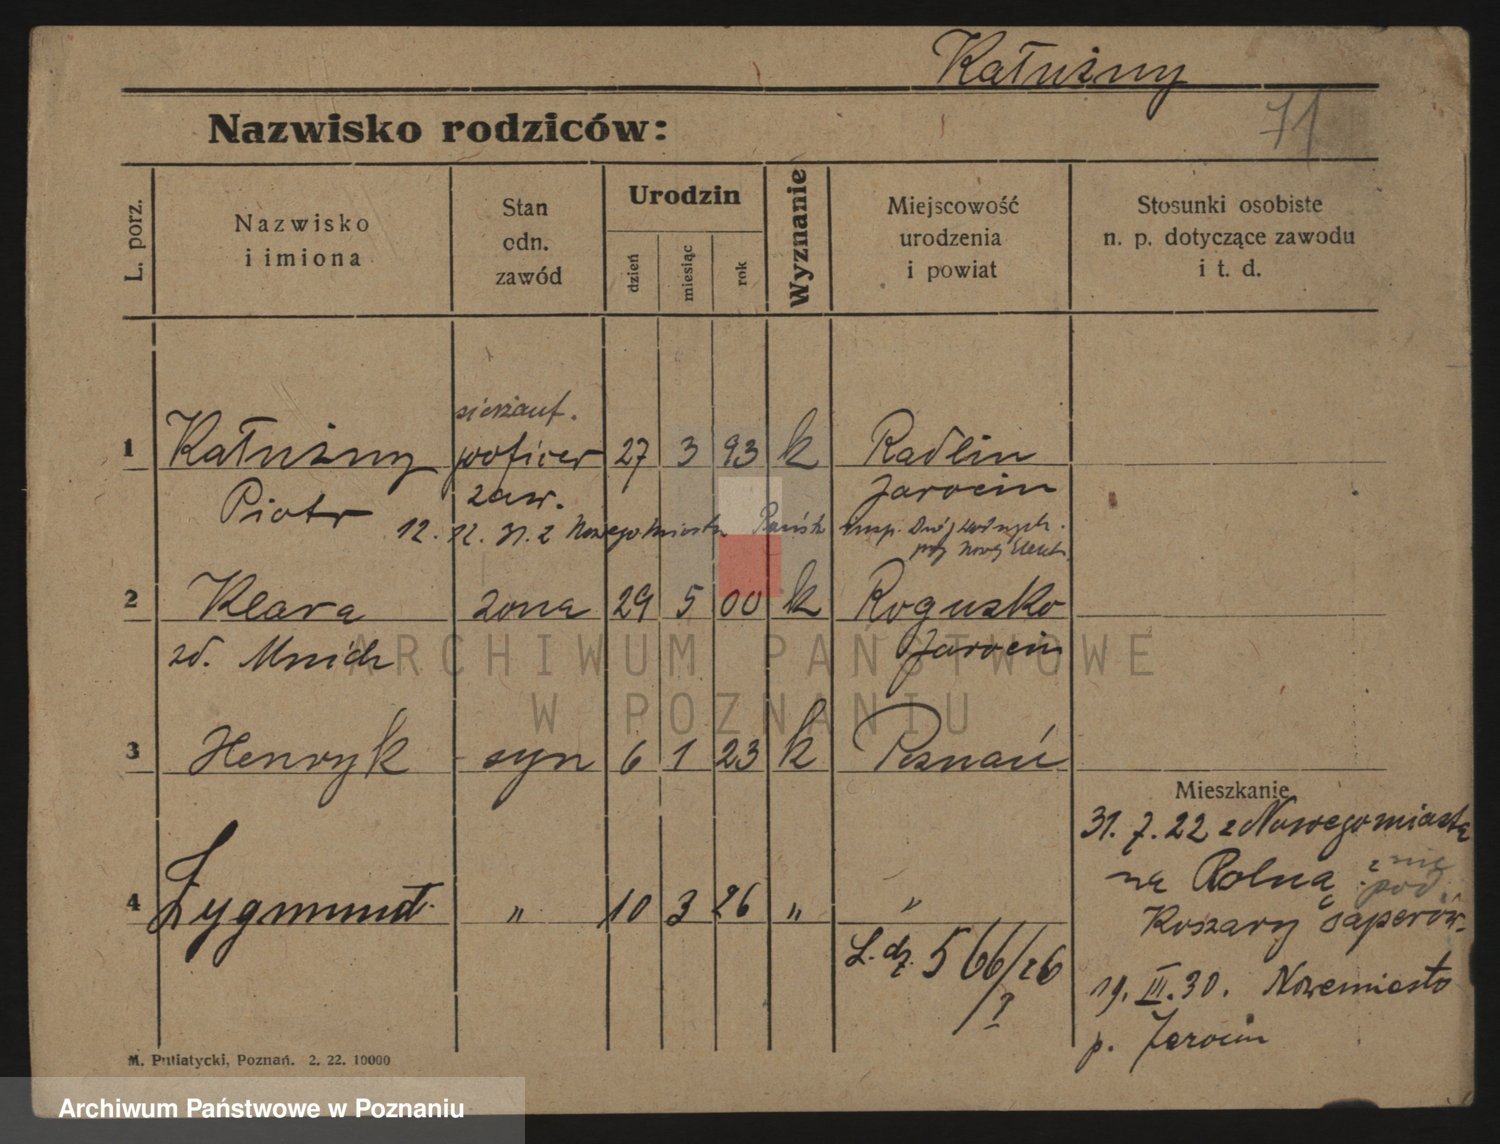 Kałużny
71
Nazwisko rodziców:
L. porz.
Nazwisko
i imiona
Stan
odn.
zawód
Urodzin
dzień
miesiąc
rok
Wyznanie
Miejscowość
urodzenia
i powiat
Stosunki osobiste
n. p. dotyczące zawodu
i t. d.
sierżant.
1 Kałużny podoficer 27 3 93 k Radlin
Piotr zaw. Jarocin
12. 12. 31. z Nowegomiasta
2 Klara żona 29 5 00 k Rogusko
zd. Mnich Jarocin
ARCHIWUM PAŃSTWOWE
W POZNANIU
3 Henryk syn 6 1 23 k Poznań
Mieszkanie
31. 7. 22 z Nowegomiasta
na Rolną
4 Zygmunt " 10 3 26 " "
Koszary Saperów
L. dz. 566/26
19. III. 30. Nowemiasto
p. Jarocin
M. Putiatycki, Poznań. 2. 22. 10000
Archiwum Państwowe w Poznaniu